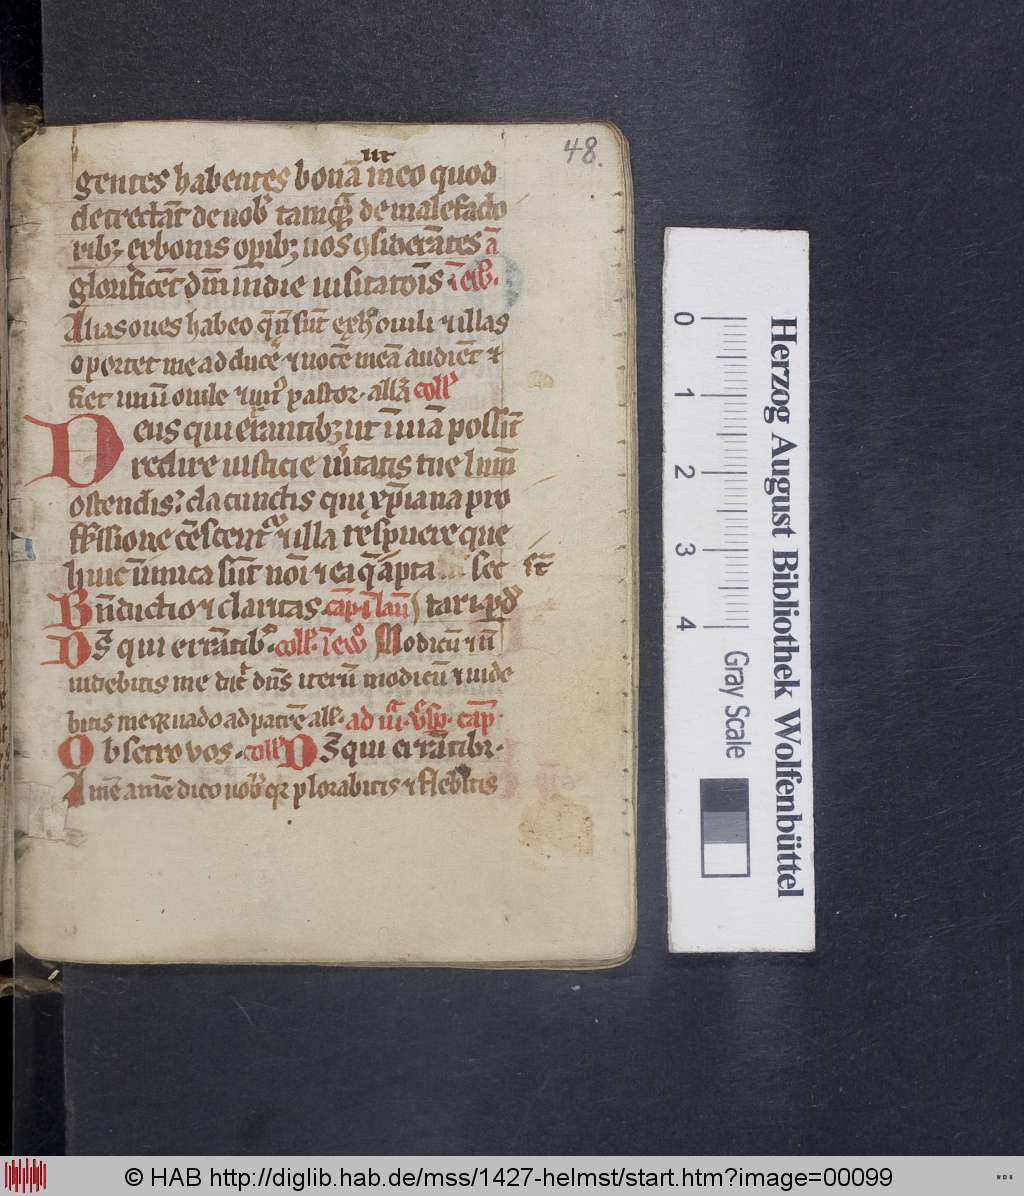 48.
ut
gentes habentes bonā in eo quod
detrectāt de uob̛ tamq̄ de malefacto
ribꝫ ex bonis oꝑibꝫ uos ꝯsiderātes ā
glorificēt dm̄ in die uisitatōis ī ew̄.
Alias oues habeo q̄ nō sūt ex h̛ ouili ⁊ illas
oportet me adducē ⁊ uocē meā audiēt ⁊
fiet unū ouile ⁊ un̛ pastor. allā coll̛
Deus qui errantibꝫ ut ī uiā possīt
redire iusticie ūitatis tue lum̄
ostendis: da cunctis qui xp̄iana pro
ffessione cēsent̛ ⁊ illa respuere que
huic inimica sūt noīi ⁊ ea q̄ apta sec sūt
Bn̄dictio ⁊ claritas. cap. ī lau tari. ꝑ d
Ds̄ qui errātib̛. coll̛. ī ew̄ Modicū ⁊ nō
uidebitis me dic̄ dn̄s iterū modicū ⁊ uide
bitis me qr uado ad patrē all̛. ad iii v̄sꝑ. cap̄.
Obsecro uos. coll̛ Ds̄ qui errātibꝫ.
Amē amē dico uob̛ qr plorabitis ⁊ flebitis
Herzog August Bibliothek Wolfenbüttel
0 1 2 3 4
Gray Scale
© HAB http://diglib.hab.de/mss/1427-helmst/start.htm?image=00099